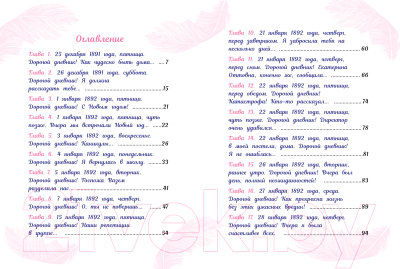 Оглавление
Глава 1. 25 декабря 1891 года, пятница.
Дорогой дневник! Как чудесно быть дома... 7
Глава 2. 26 декабря 1891 года, суббота.
Дорогой дневник! Я должна
рассказать тебе... 15
Глава 3. 1 января 1892 года, пятница.
Дорогой дневник! С Новым годом! 21
Глава 4. 1 января 1892 года, пятница, чуть
позже. Вчера мы встречали Новый год... 22
Глава 5. 3 января 1892 года, воскресенье.
Дорогой дневник! Каникулы... 26
Глава 6. 4 января 1892 года, понедельник.
Дорогой дневник! Я вернулась в школу 33
Глава 7. 5 января 1892 года, вторник.
Дорогой дневник! Госпожа Назем
разделила нас... 41
Глава 8. 7 января 1892 года, четверг.
Дорогой дневник! О, ты не поверишь... 47
Глава 9. 15 января 1892 года, пятница.
Дорогой дневник! Наши репетиции
в группе... 54
Глава 10. 21 января 1892 года, четверг,
перед завтраком. Я забросила тебя на
несколько дней... 60
Глава 11. 21 января 1892 года, четверг,
перед сном. Дорогой дневник! Екатерина
Оттовна, конечно же, сообщила... 66
Глава 12. 22 января 1892 года, пятница,
перед обедом. Дорогой дневник!
Катастрофа! Кто-то рассказал... 74
Глава 13. 22 января 1892 года, пятница,
чуть позже. Дорогой дневник! Директор
очень удивился... 78
Глава 14. 22 января 1892 года, пятница,
в моей постели, дома. Дорогой дневник!
Я не ошиблась... 81
Глава 15. 26 января 1892 года, вторник,
раннее утро. Дорогой дневник! Вчера был
день, полный неожиданностей! 83
Глава 16. 27 января 1892 года, среда.
Дорогой дневник! Как прекрасна жизнь
без этих ужасных вредин! 89
Глава 17. 28 января 1892 года, четверг.
Дорогой дневник! Вчера я была
счастливее всех. 94